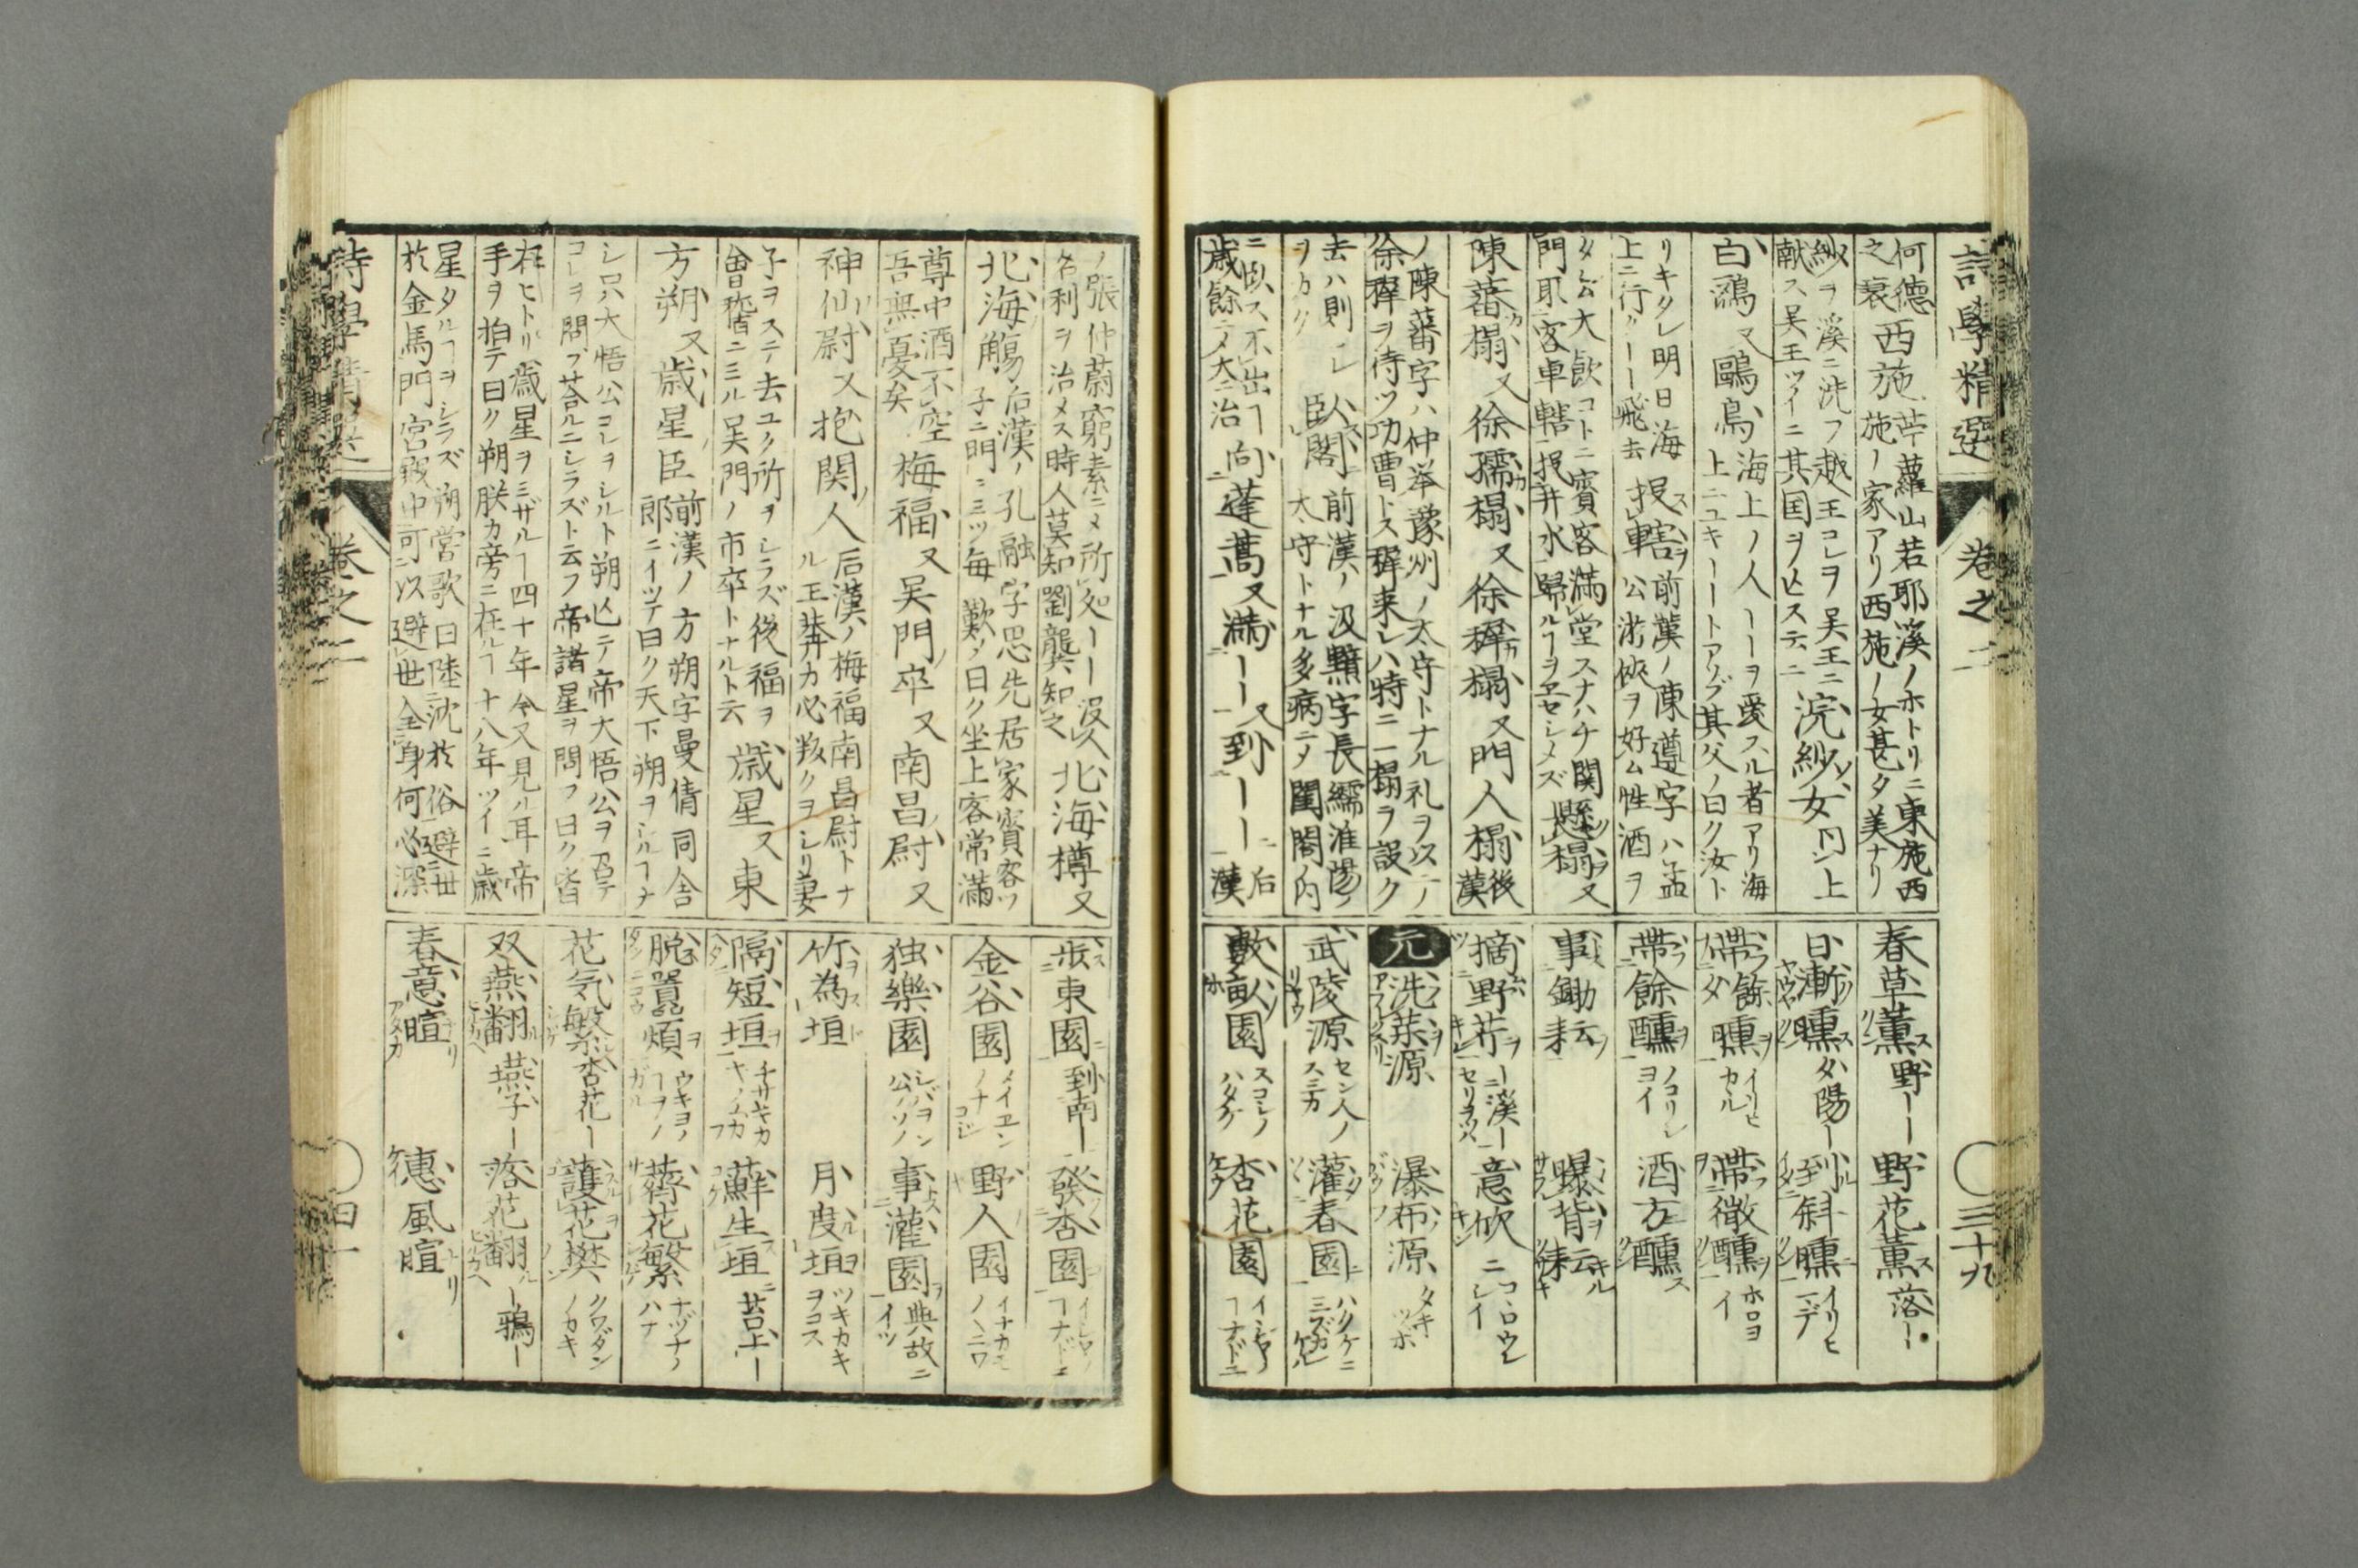 詩學精選 卷之二 三十九
何德 芢蘿山若耶溪ノホトリニ東施西
之衰 西施 施ノ家アリ西施ノ女甚タ美ナリ
紗ヲ溪ニ洗フ越王コレヲ呉王ニ
献ス呉王ツイニ其国ヲ亡ステニ 浣紗女 同シ上
白鴻 又 鷗鳥 海上ノ人ーーヲ愛スル者アリ海
上ニユキーートアソブ其父ノ曰ク汝ト
リキタレ明日海
上ニ行クーー飛去 投轄 前漢ノ陳遵字ハ孟
公游俠ヲ好ム性酒ヲ
タシム大飲コトニ賓客満堂スナハチ関
門取客車轄投井水歸ルーヲヱセシメズ 懸榻 又
陳蕃榻 又 徐孺榻 又 徐穉榻 又 門人榻 後漢
ノ陳蕃字ハ仲挙豫州ノ太守トナル礼ヲ以テノ
徐穉ヲ待ツ功曹トス穉来レハ特ニ一榻ヲ設ク
去ハ則レ
ヲカク 臥閣 前漢ノ汲黯字長孺淮陽ノ
太守トナル多病ニメ閨閤ノ内
ニ臥ス不出ー
歳餘ニメ大ニ治 向蓬蒿 又 滿ーー 又 到ーー 后漢
春草薫 野ーー 野花薫 落ー
日漸曛 夕陽ー 到斜曛 イリヒ
帶餘曛 イリヒ 帶微醺 ホロヨイ
帶餘醺 ノコリシヨイ 酒方醺
事鋤耘 曝背耘
摘野芹 ー溪ー 意欣
元 洗薬源 瀑布源 タキツホ
武陵源 センノ人ノスミカ 灌春園 ハタケニミズカケル
數畝園 スコシノハタケ 杏花園
ノ張仲蔚窮素ニメ所処ーー没人
名利ヲ治メス時人莫知劉龔知之 北海樽 又
北海觴 后漢ノ孔融字思先居家賓客ツ
子ニ門ニミツ毎歎ノ曰ク坐上客常滿
尊中酒不空
吾無憂矣 梅福 又 呉門卒 又 南昌尉 又
神仙尉 又 抱関人 后漢ノ梅福南昌尉トナ
ル王莽カ必叛クヲシリ妻
子ヲステ去ユク所ヲシラズ後福ヲ
會稽ニミル呉門ノ市卒トナルト云 歳星 又 東
方朔 又 歳星臣 前漢ノ方朔字曼倩同舎
郎ニイツテ曰ク天下朔ヲシルーナ
シ只大悟公コレヲシルト朔亡テ帝大悟公ヲ召テ
コレヲ問フ荅ルニシラズト云フ帝諸星ヲ問フ曰ク皆
在ヒトリ歳星ヲミザルー四十年今又見ル耳帝
手ヲ拍テ曰ク朔朕カ旁ニ在ルー十八年ツイニ歳
星タルーヲシラズ朔嘗歌曰陸沈於俗避世
於金馬門宮殿中可以避世全身何必深
歩東園 到南ー 發杏園
金谷園 メイヱンノナ 野人園 イナカモノヽニワ
独樂園 シバヲン公ノソノ 事灌園 典故ニイツ
竹為垣 月度垣 ツキカキヲコス
隔短垣 チサキカキ 蘚生垣 苔上ー
脱囂煩 ウキヨノ 薺花繁 ナヅナノハナ
花気繁 杏花ー 護花樊 クワダンノカキ
双燕翻 燕子ー 落花翻 ー鴉ー
春意暄 アタヽカ 德風暄
詩學精選 卷之二 四十